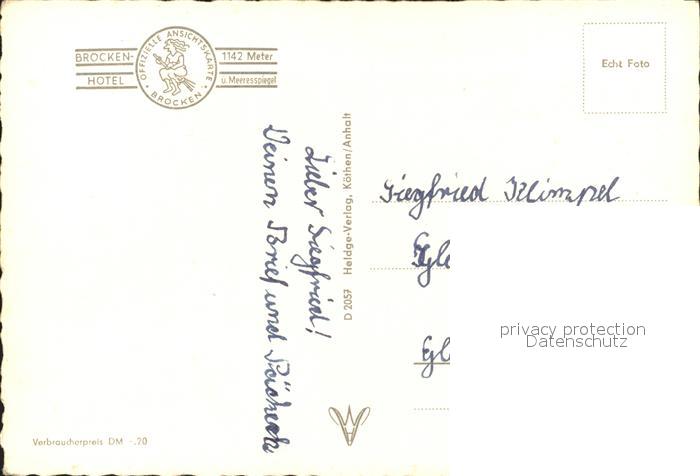 BROCKEN-
HOTEL
OFFIZIELLE ANSICHTSKARTE
BROCKEN
1142 Meter
u. Meeresspiegel
Echt Foto
Lieber Siegfried!
Deinen Brief und
D 2057 Heldge-Verlag, Köthen/Anhalt
Siegfried Klimpel
privacy protection
Datenschutz
Verbraucherpreis DM -.20